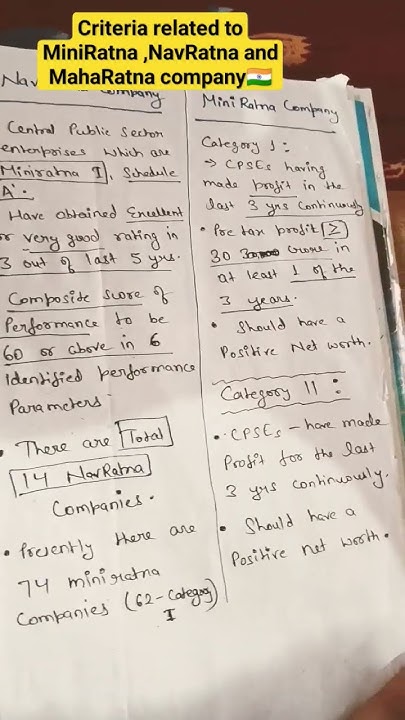 Criteria related to
MiniRatna ,NavRatna and
MahaRatna company🇮🇳
Nav Company
Central Public Sector
enterprises which are
Miniratna I, Schedule
A'.
Have obtained Excellent
or very good rating in
3 out of last 5 yrs.
Composite score of
Performance to be
60 or above in 6
Identified performance
Parameters
• There are Total
14 NavRatna
Companies.
• Presently there are
74 miniratna
Companies (62-Category
I)
Mini Ratna Company
Category 1 :
→ CPSEs having
made profit in the
last 3 yrs continously
• Pre tax profit [≥]
30 crore in
at least 1 of the
3 years.
• Should have a
Positive Net worth.
Category 11 :
• CPSEs - have made
Profit for the last
3 yrs continously.
• Should have a
Positive net worth.